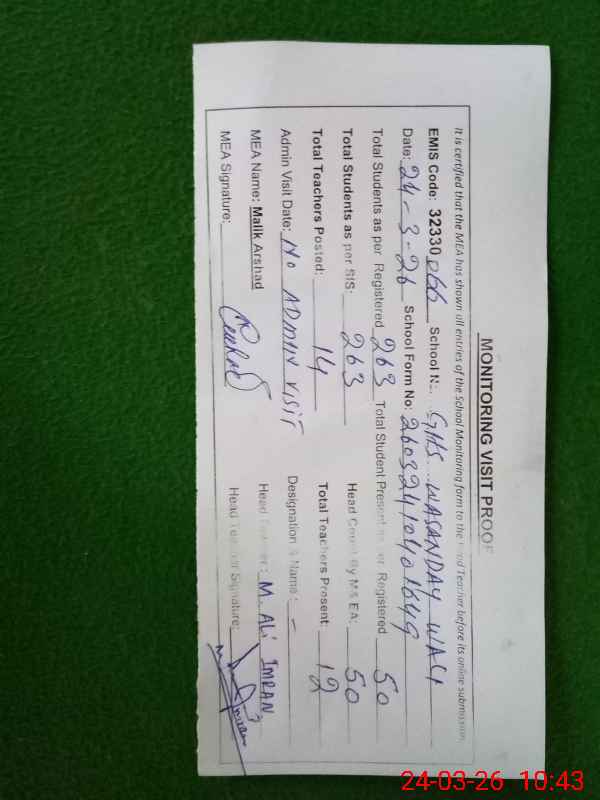 MONITORING VISIT PROOF
It is certified that the MEA has shown all entries of the School Monitoring form to the Head Teacher before its online submission.
EMIS Code: 32330 066 School N:. GHS WASANDAY WALI
Date: 24-3-26 School Form No: 26032410401649
Total Students as per Registered 263 Total Student Present as per Registered 50
Total Students as per SIS: 263 Head Count By M& EA: 50
Total Teachers Posted: 14 Total Teachers Present: 12
Admin Visit Date: NO ADMIN VISIT Designation & Name: -
MEA Name: Malik Arshad Head Teacher: M. ALi IMRAN
MEA Signature: Head Teacher Signature:
24-03-26 10:43